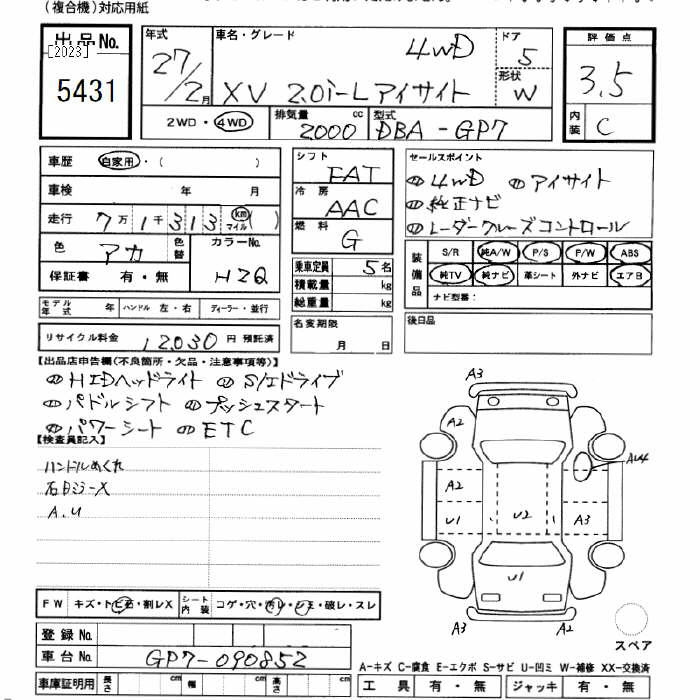 (複合機)対応用紙
出品No.
[2023]
5431
年式 車名・グレード ドア
27/2月 XV 2.0i-Lアイサイト 4WD 5
形状
W
2WD・4WD 排気量 2000 cc 型式 DBA-GP7
評価点
3.5
内装 C
車歴 自家用・( )
車検 年 月
走行 7万1千313 km マイル ( )
色 アカ 色替 カラーNo. HZQ
保証書 有・無
モデル年式 年 ハンドル 左・右 ディーラー・並行
リサイクル料金 12030 円 預託済
シフト FAT
冷房 AAC
燃料 G
乗車定員 5名
積載量 kg
総重量 kg
名変期限
月 日
セールスポイント
4WD アイサイト
純正ナビ
レーダークルーズコントロール
装備品 S/R 純A/W P/S P/W ABS
純TV 純ナビ 革シート 外ナビ エアB
ナビ型番:
後日品
【出品店申告欄(不良箇所・欠品・注意事項等)】
HIDヘッドライト S/Iドライブ
パドルシフト プッシュスタート
パワーシート ETC
【検査員記入】
ハンドルめくれ
A.U
FW キズ・トビ石・割レX シート内装 コゲ・穴・汚レ・シミ・破レ・スレ
登録No.
車台No. GP7-090852
車庫証明用 長さ cm 幅 cm 高さ cm
A3
A2
AU4
A2
U1 U2 A3
U1
A3 A2
スペア
A-キズ C-腐食 E-エクボ S-サビ U-凹ミ W-補修 XX-交換済
工具 有・無 ジャッキ 有・無